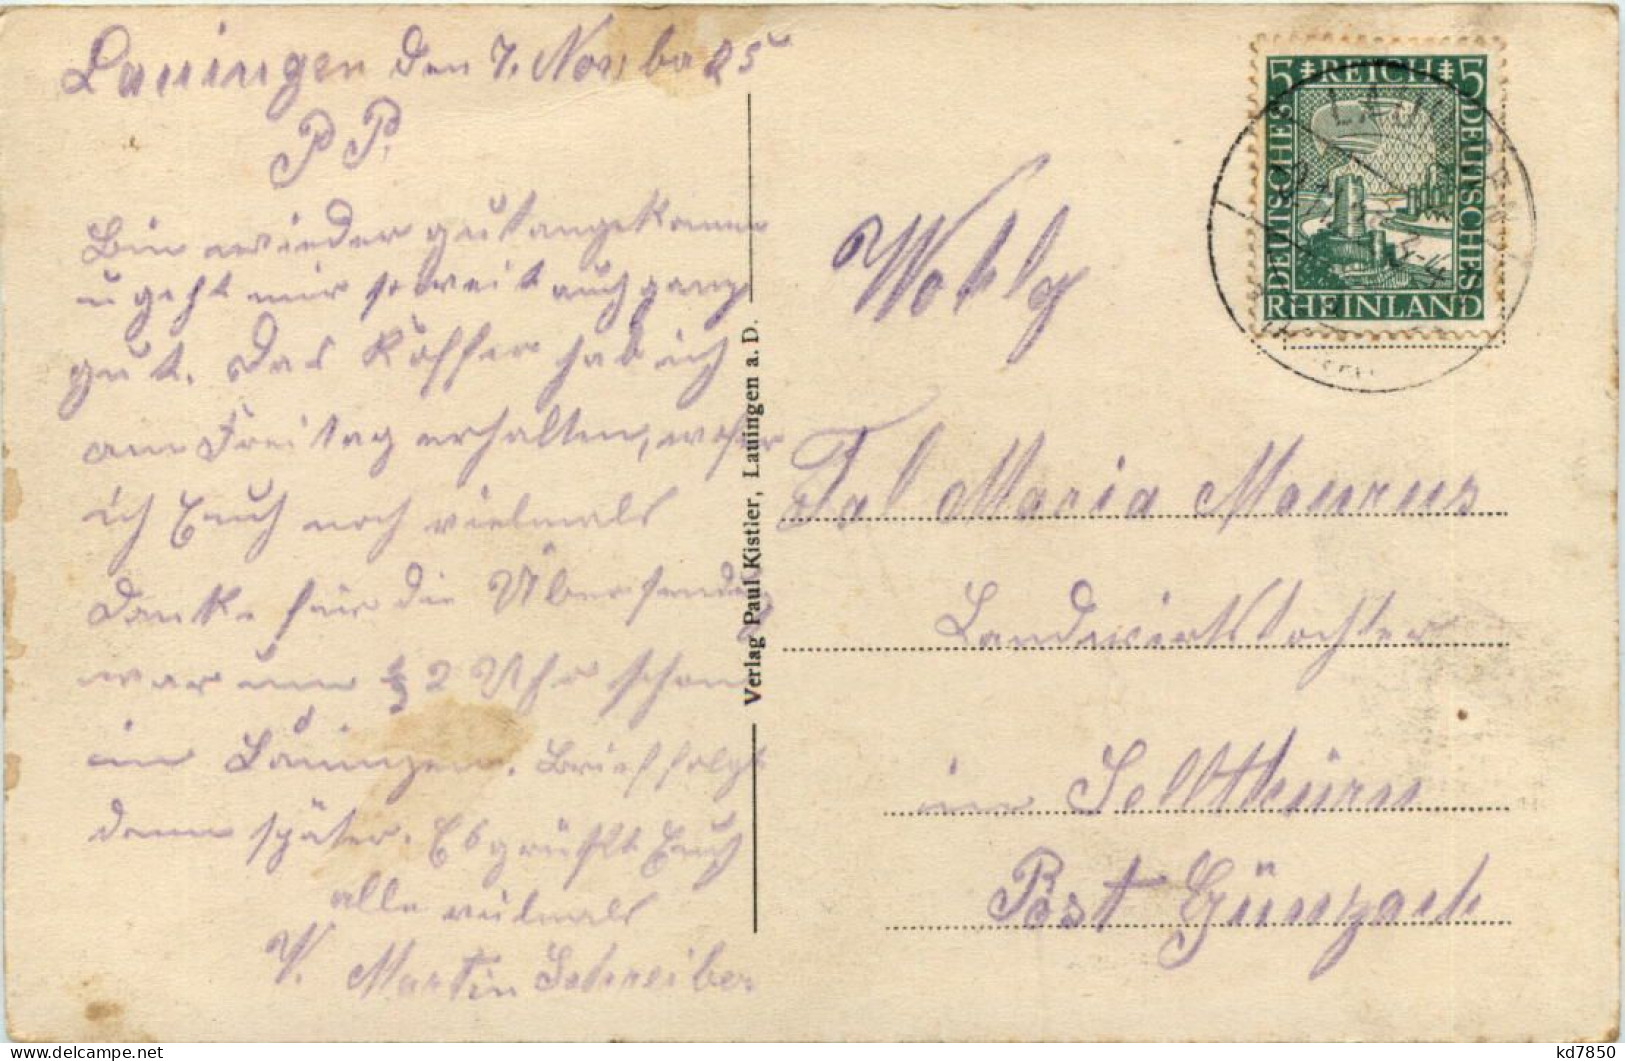 Lauingen den 7. November 25
P P.
Bin wieder gut angekommen
u geht mir soweit auch ganz
gut. Das Koffer hab ich
am Freitag erhalten, wofür
ich Euch noch vielmals
Danke für die Übersendung
war um ½ 2 Uhr schon
in Lauingen. Brief folgt
dann später. Es grüßt Euch
alle vielmals
V. Martin Schreiber
Verlag Paul Kistler, Lauingen a. D.
5 REICH 5
DEUTSCHES
DEUTSCHES
RHEINLAND
Wohlg
Frl Maria Maurus
Landwirtstochter
in Sellthürn
Post Günzach
kd7850